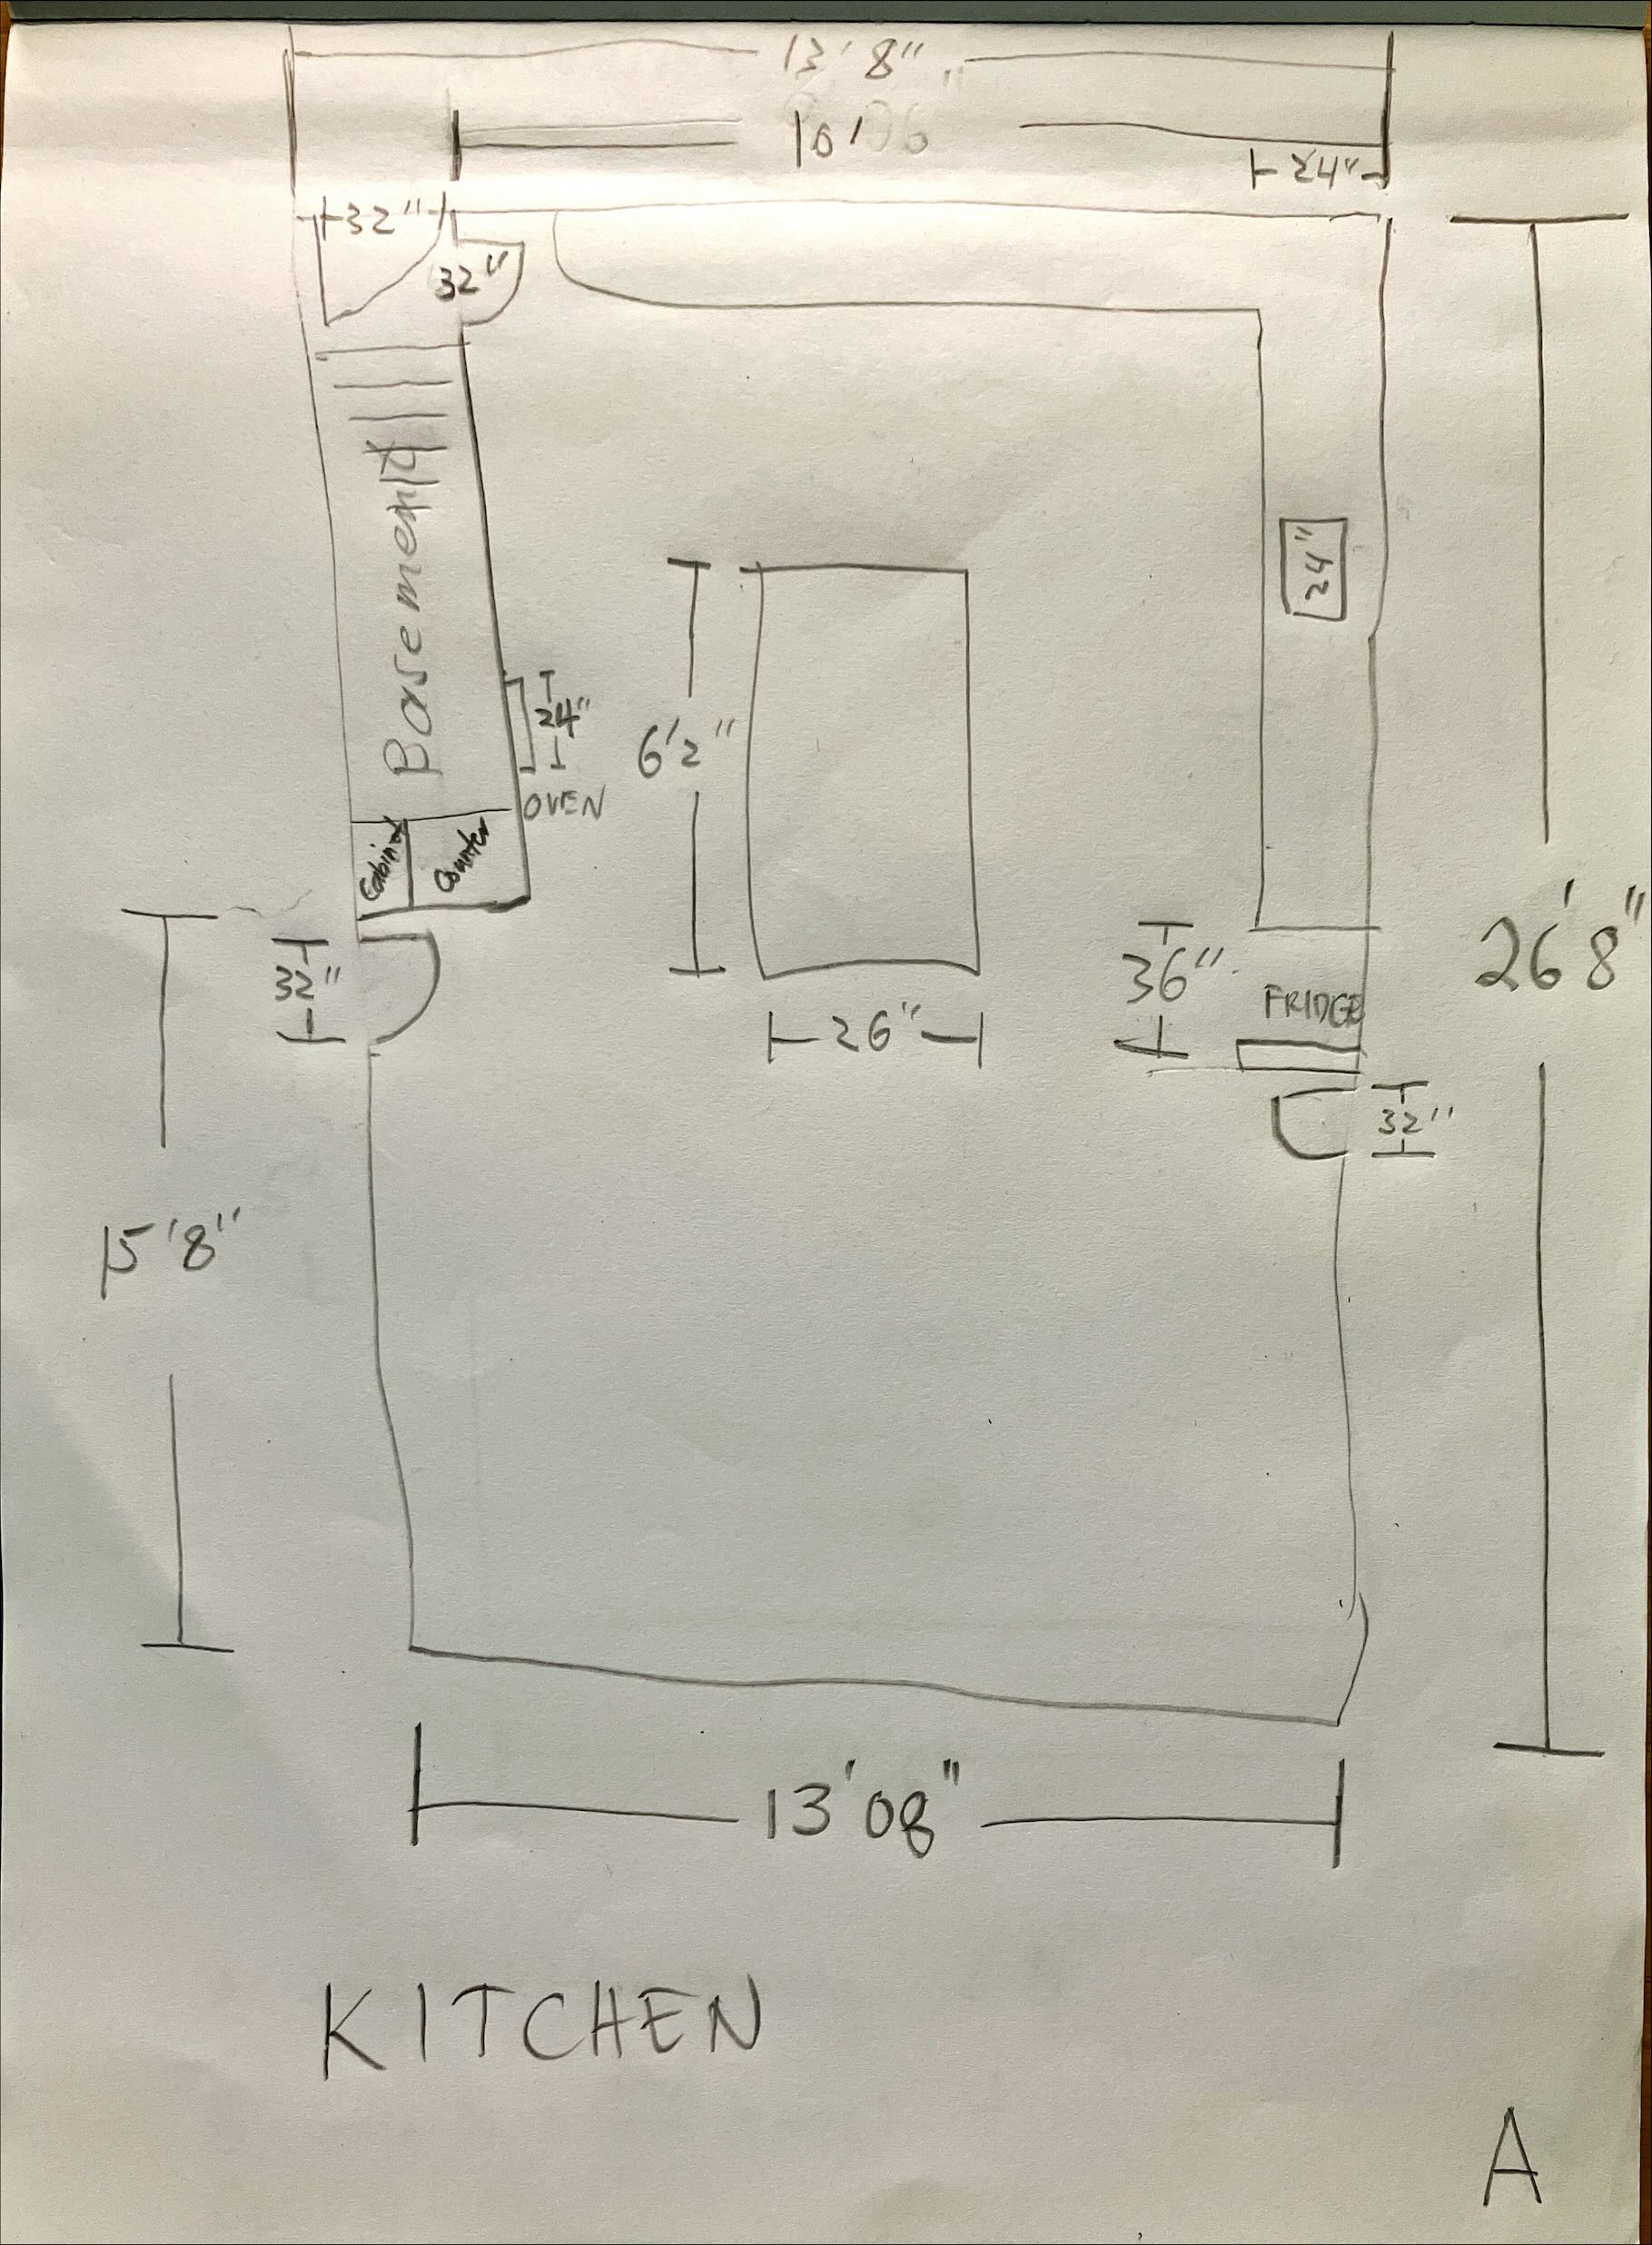 13'8"
10'06"
24"
32"
32"
Basement
24"
24"
OVEN
6'2"
Cabinet
Counter
32"
36"
FRIDGE
26'8"
26"
32"
15'8"
13'08"
KITCHEN
A